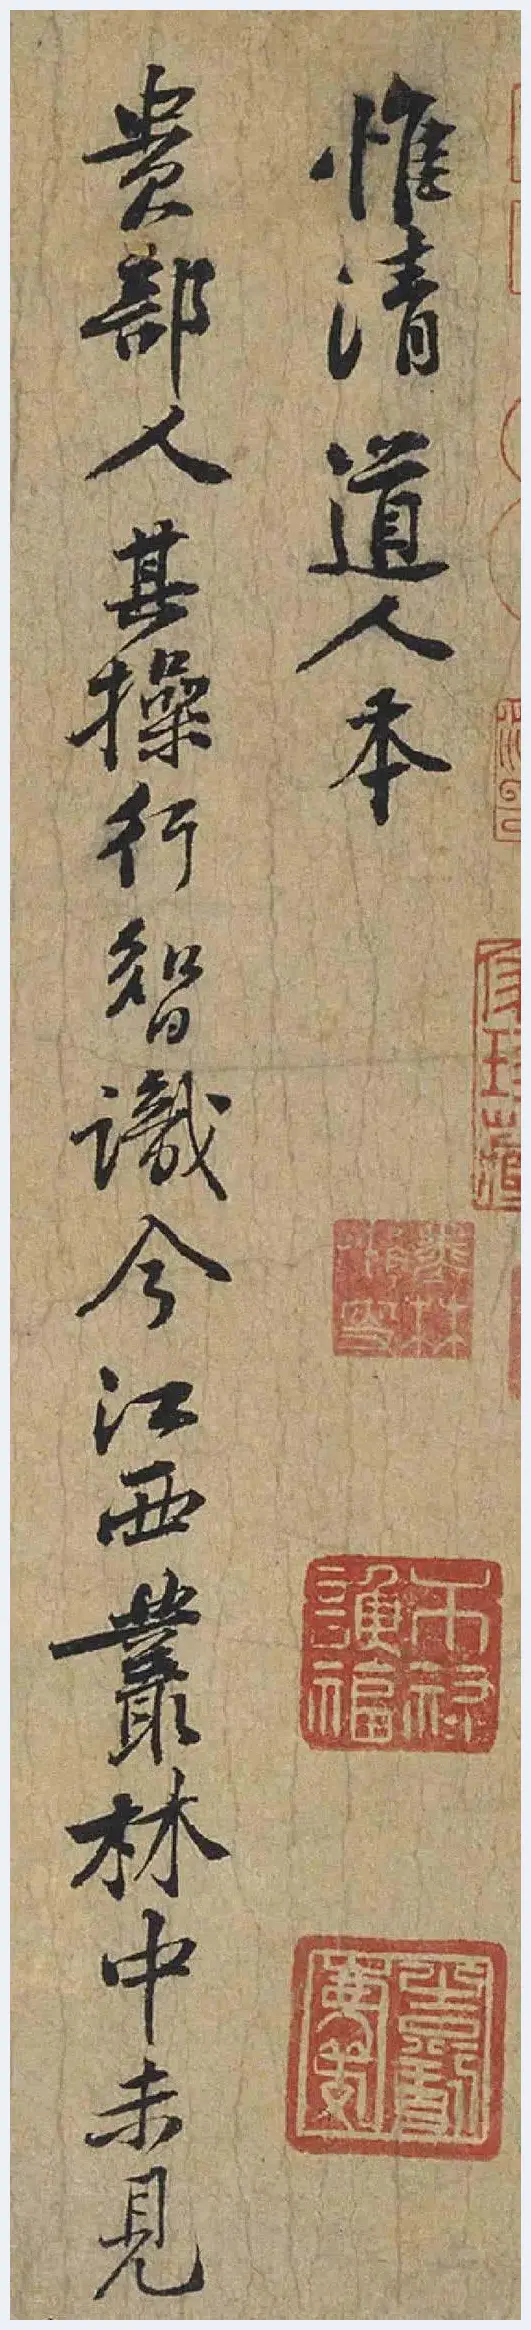 惟清道人本
貴部人其操行智識今江西叢林中未見